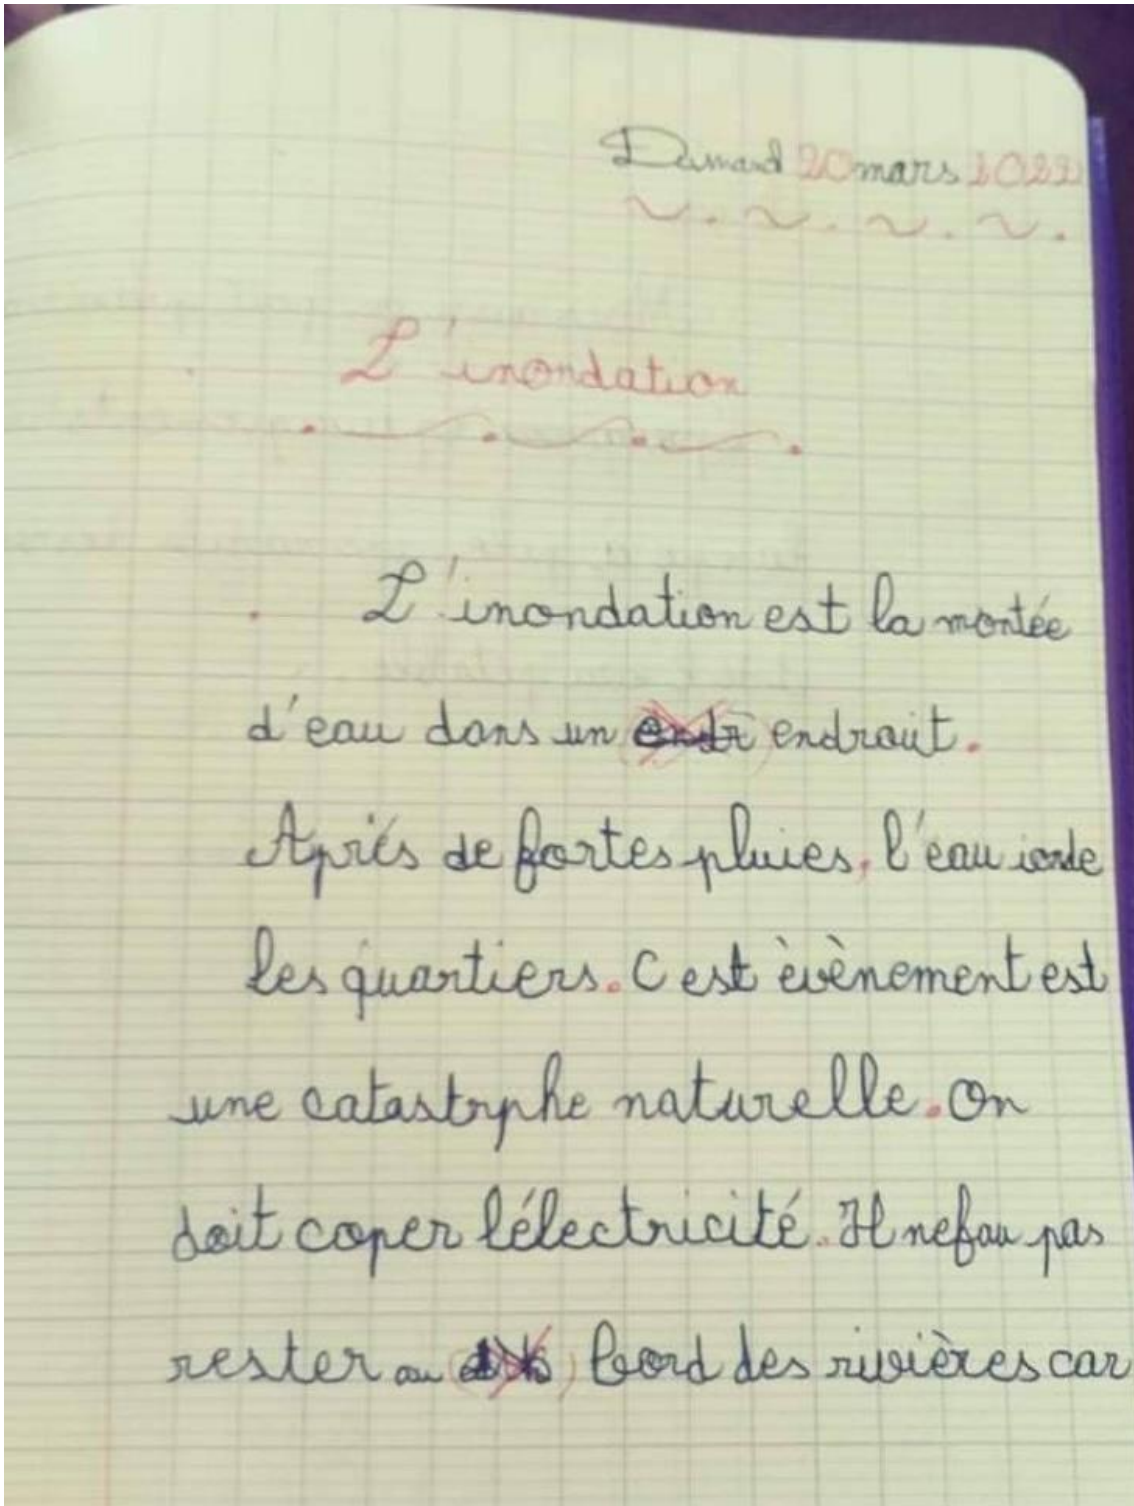 Dimand 20 mars 2022
L'inondation
L'inondation est la montée
d'eau dans un endroit.
Apriés de fortes pluies, l'eau ionde
les quartiers. C est èvènement est
une catastrphe naturelle. On
doit coper l'électricité. Il nefau pas
rester au bord des rivières car